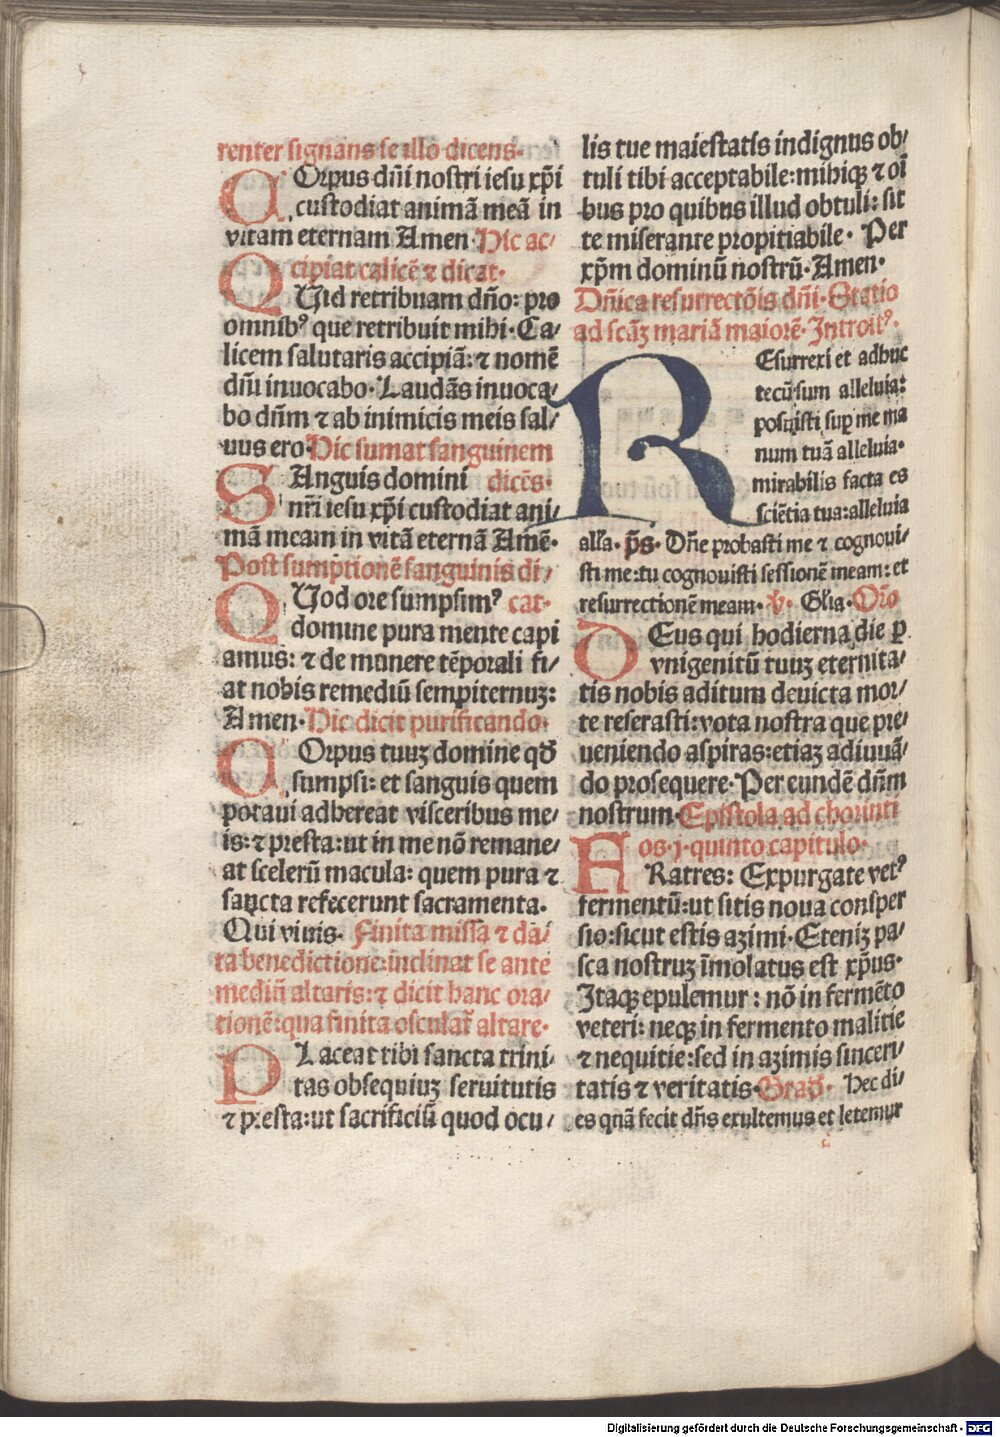 renter signans se illo dicens·
COrpus dñi nostri iesu xp̄i
custodiat animā meā in
vitam eternam Amen· Hic ac⸗
cipiat calicē ⁊ dicat·
QUid retribuam dño: pro
omnibꝰ que retribuit mihi· Ca⸗
licem salutaris accipiā: ⁊ nomē
dñi inuocabo· Laudās inuoca⸗
bo dñm ⁊ ab inimicis meis sal⸗
uus ero· Hic sumat sanguinem
SAnguis domini dicēs·
nr̄i iesu xp̄i custodiat ani⸗
mā meam in vitā eternā Amē·
Post sumptionē sanguinis di⸗
QUod ore sumpsimꝰ cat·
domine pura mente capi
amus: ⁊ de munere tēporali fi⸗
at nobis remediū sempiternuꝫ:
Amen· Hic dicit purificando·
COrpus tuuꝫ domine qð
sumpsi: et sanguis quem
potaui adhereat visceribus me⸗
is: ⁊ presta: ut in me nō remane⸗
at scelerū macula: quem pura ⁊
sancta refecerunt sacramenta·
Qui viuis· Finita missa ⁊ da⸗
ta benedictione: inclinat se ante
mediū altaris: ⁊ dicit hanc ora⸗
tionē: qua finita osculat᷑ altare·
PLaceat tibi sancta trini⸗
tas obsequiuꝫ seruitutis
⁊ presta: ut sacrificiū quod ocu⸗
lis tue maiestatis indignus ob⸗
tuli tibi acceptabile: mihiqꝫ ⁊ oī
bus pro quibus illud obtuli: sit
te miserante propitiabile· Per
xp̄m dominū nostrū· Amen·
Dñica resurrectōis dñi· Statio
ad scāꝫ mariā maiorē· Introitꝰ·
REsurrexi et adhuc
tecū sum alleluia:
posuisti suꝑ me ma
num tuā alleluia·
mirabilis facta es
sciētia tua: alleluia
alľa· p̄s· Dñe probasti me ⁊ cognoui⸗
sti me: tu cognouisti sessionē meam: et
resurrectionē meam· ꝟ· Glīa· Orō
DEus qui hodierna die ꝑ
vnigenitū tuuꝫ eternita⸗
tis nobis aditum deuicta mor⸗
te reserasti: vota nostra que pre⸗
ueniendo aspiras: etiaꝫ adiuuā⸗
do prosequere· Per eundē dñm
nostrum· Epistola ad chorinti
os·j·quinto capitulo·
FRatres: Expurgate vetꝰ
fermentū: ut sitis noua consper
sio: sicut estis azimi· Eteniꝫ pa⸗
sca nostruꝫ īmolatus est xp̄us·
Itaqꝫ epulemur: nō in fermēto
veteri: neqꝫ in fermento malitie
⁊ nequitie: sed in azimis sinceri⸗
tatis ⁊ veritatis· Grað· Hec di⸗
es quā fecit dñs exultemus et letemur
Digitalisierung gefördert durch die Deutsche Forschungsgemeinschaft · DFG